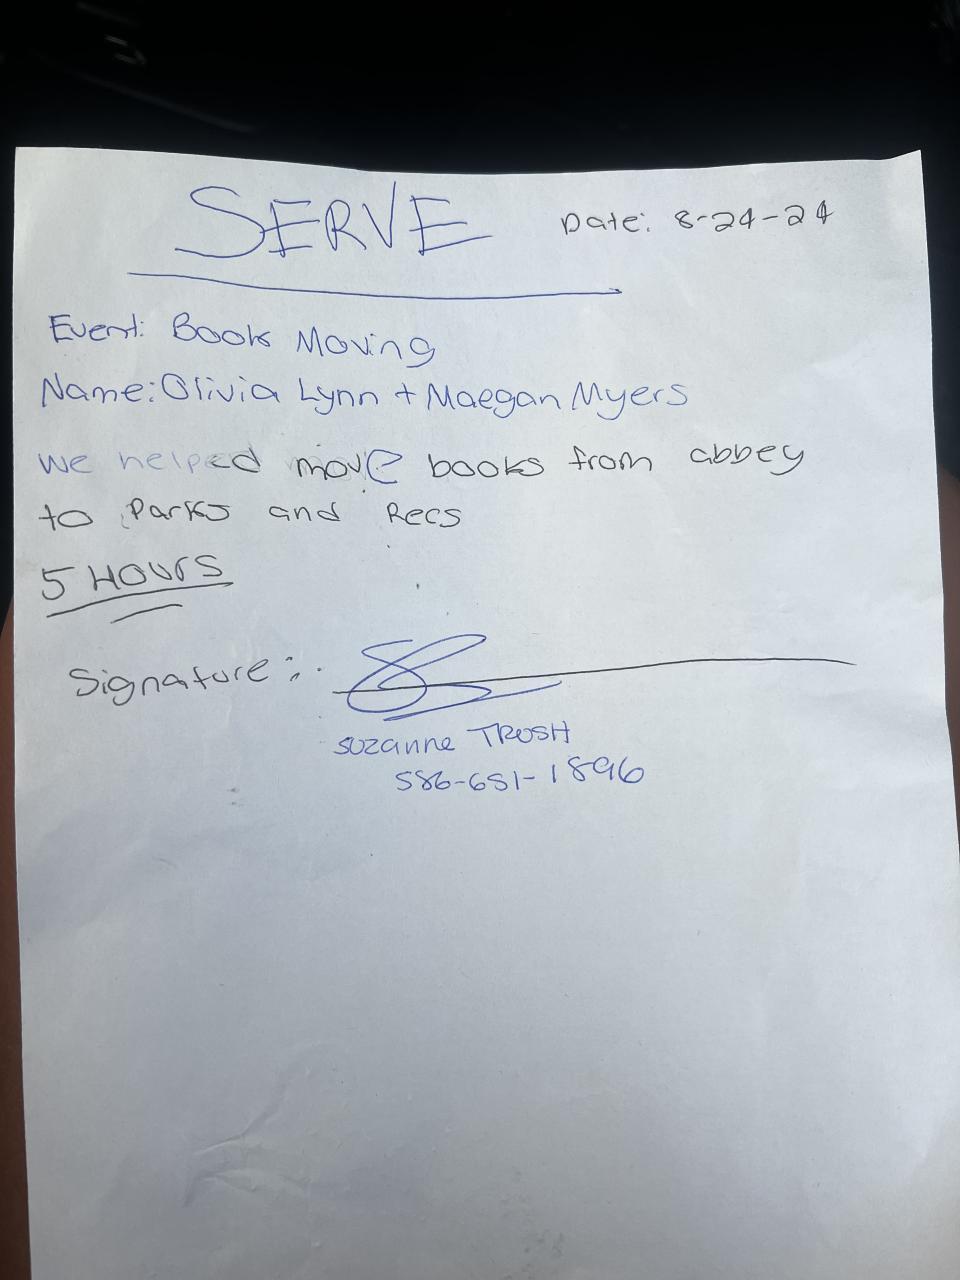 SERVE
Date: 8-24-24
Event: Book Moving
Name: Olivia Lynn + Maegan Myers
we helped move books from abbey
to Parks and Recs
5 HOURS
Signature:
Suzanne TROSH
586-651-1896